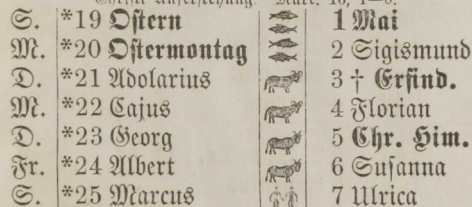 Christi Auferstehung. Marc. 16, 1—8.
S. *19 Ostern 1 Mai
M. *20 Ostermontag 2 Sigismund
D. *21 Adolarius 3 † Erfind.
M. *22 Cajus 4 Florian
D. *23 Georg 5 Chr. Him.
Fr. *24 Albert 6 Susanna
S. *25 Marcus 7 Ulrica